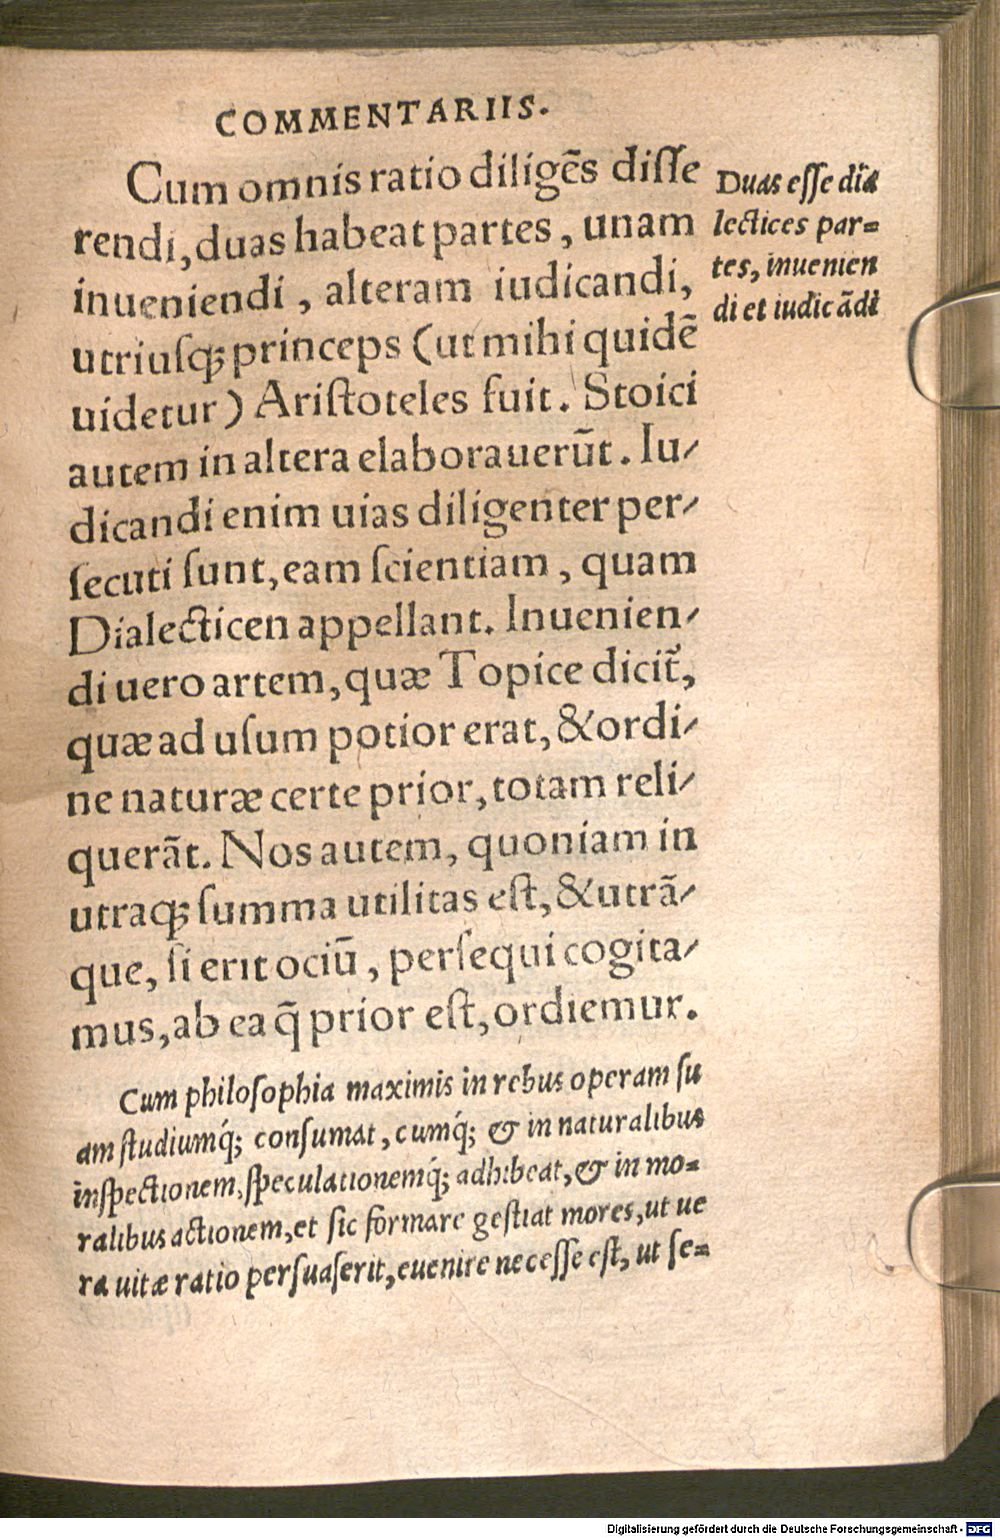 COMMENTARIIS.
Cum omnis ratio diligẽs disſe
rendi, duas habeat partes, unam
inueniendi, alteram iudicandi,
utriuſq; princeps (ut mihi quidẽ
uidetur) Ariſtoteles fuit. Stoici
autem in altera elaborauerũt. Iu/
dicandi enim uias diligenter per/
ſecuti ſunt, eam ſcientiam, quam
Dialecticen appellant. Inuenien/
di uero artem, quæ Topice dicit̃,
quæ ad uſum potior erat, & ordi/
ne naturæ certe prior, totam reli/
querãt. Nos autem, quoniam in
utraq; ſumma utilitas eſt, & utrã/
que, ſi erit ociũ, perſequi cogita/
mus, ab ea q̃ prior eſt, ordiemur.
Duas eſſe dia
lectices par=
tes, inuenien
di et iudicãdi
Cum philoſophia maximis in rebus operam ſu
am ſtudiumq́; conſumat, cumq́; & in naturalibus
inſpectionem, ſpeculationemq́; adhibeat, & in mo=
ralibus actionem, et ſic formare geſtiat mores, ut ue
ra uitæ ratio perſuaſerit, euenire neceſſe eſt, ut ſe=
Digitalisierung gefördert durch die Deutsche Forschungsgemeinschaft - DFG